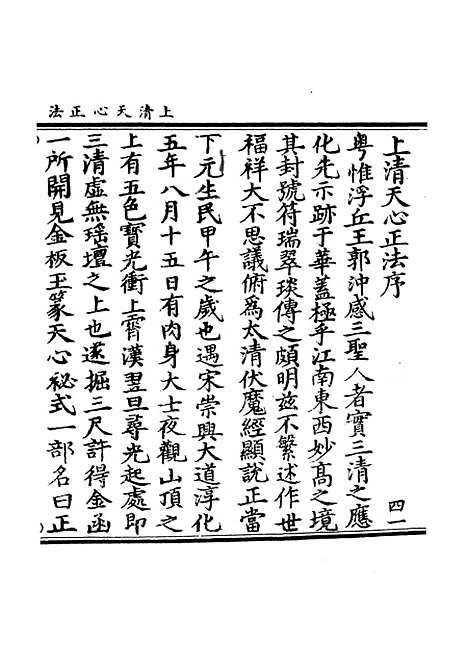 上清天心正法
上清天心正法序
四一
粤惟浮丘王郭沖感三聖人者實三清之應
化先示跡于華蓋極乎江南東西妙髙之境
其封號符瑞翠琰傳之頗明兹不繁述作世
福祥大不思議俯爲太清伏魔經顯說正當
下元生民甲午之歲也遇宋崇興大道淳化
五年八月十五日有肉身大士夜觀山頂之
上有五色寶光衝上霄漢翌旦尋光起處即
三清虛無瑶壇之上也遂掘三尺許得金函
一所開見金板玉篆天心祕式一部名曰正